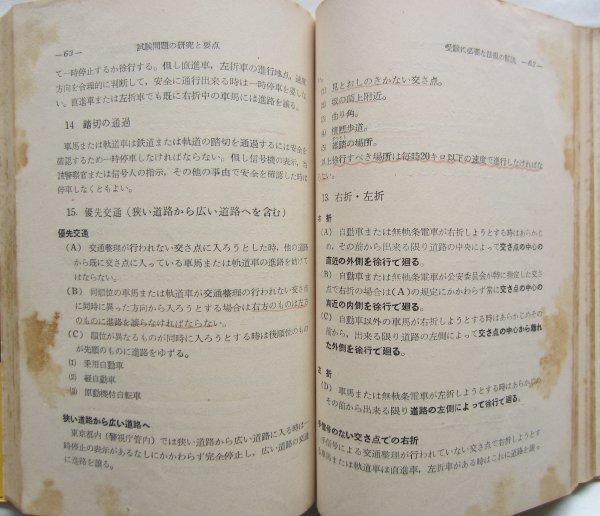 受験に必要な法規の解説 —62—
(1) 見とおしのきかない交さ点。
(2) 坂の頂上附近。
(3) 曲り角。
(4) 横断歩道。
(5) 雑踏の場所。
以上徐行すべき場所は毎時20キロ以下の速度で進行しなければな
らない。
13 右折・左折
右 折
(A) 自動車または無軌条電車が右折しようとする時はあらかじ
め、その前から出来る限り道路の中央によって交さ点の中心の
直近の外側を徐行で廻る。
(B) 自動車または無軌条電車が公安委員会が特に指定した交さ
点で右折の場合は(A)の規定にかかわらず常に交さ点の中心の
直近の内側を徐行で廻る。
(C) 自動車以外の車馬が右折しようとする時はあらかじめその
前から、出来る限り道路の左側によって交さ点の中心から離れ
た外側を徐行で廻る。
左 折
(D) 車馬または無軌条電車が左折しようとする時はあらかじめ
その前から出来る限り道路の左側によって徐行で廻る。
手信号のない交さ点での右折
手信号による交通整理が行われていない交さ点で右折しようとす
る車馬または軌道車は直進車、左折車がある時はこれに進路を譲っ
—63— 試験問題の研究と要点
て一時停止するか徐行する。但し直進車、左折車の進行地点、速度、
方向を合理的に判断して、安全に通行出来る時は一時停車を要しな
い。直進車または左折車でも既に右折中の車馬には進路を譲る。
14 踏切の通過
車馬または軌道車は鉄道または軌道の踏切を通過するには安全を
確認するため一時停車しなければならない。但し信号機の表示、当
該警察官または信号人の指示、その他の事由で安全を確認した時は
停車しなくともよい。
15. 優先交通（狭い道路から広い道路へを含む）
優先交通
(A) 交通整理が行われない交さ点に入ろうとした時、他の道路
から既に交さ点に入っている車馬または軌道車の進路を妨げて
はならない。
(B) 同順位の車馬または軌道車が交通整理の行われない交さ点
に同時に異った方向から入ろうとする場合は右方のものは左方
のものに進路を譲らなければならない。
(C) 順位が異なるものが同時に入ろうとする時は後順位のもの
が先順のものに進路をゆずる。
(1) 乗用自動車
(2) 軽自動車
(3) 原動機付自転車
狭い道路から広い道路へ
東京都内（警視庁管内）では狭い道路から広い道路に入る時は一
時停止の表示があるなしにかかわらず完全停止し、広い道路の交通
に進路を譲る。